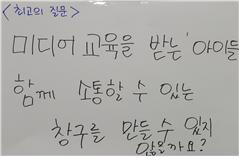 <최고의 질문>
미디어 교육을 받는 아이들
함께 소통할 수 있는
창구를 만들 수 있지
않을까요?